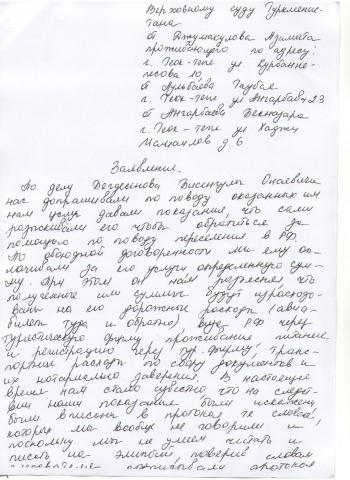 Верховному суду Туркменис-
тана
от Джумакулова Азамата
проживающего по адресу:
г. Геок-тепе ул. Курбанне-
песова 10
от Аульбаева Гаубая
г. Геок-тепе ул Ангарбай 23
от Ангарбаева Бекназара
г. Геок-тепе ул Хаджи
д. 6
Заявление.
По делу Дегдеенова Бисингула Опаевича
нас допрашивали по поводу оказанных им
нам услуг давали показания, что сами
разыскивали его чтобы обратиться за
помощью по поводу переселения в РФ
По обоюдной договоренности мы ему оп-
лачивали за его услуги определенную сум-
му. При этом он нам разъяснял, что
полученные им суммы будут израсходо-
ваны на его дорожные расходы (авиа-
билет туда и обратно), визу РФ через
туристическую фирму, проживание питание
и регистрацию через тур. фирму, транс-
портные расходы по сбору документов и
их нотариально заверения. В настоящее
время нам стало известно что на следст-
вии наши показания были искажены
были вписаны в протокол те слова,
которых мы вообще не говорили и,
поскольку мы не умеем читать и
писать на поверив словам
подписывали протокол